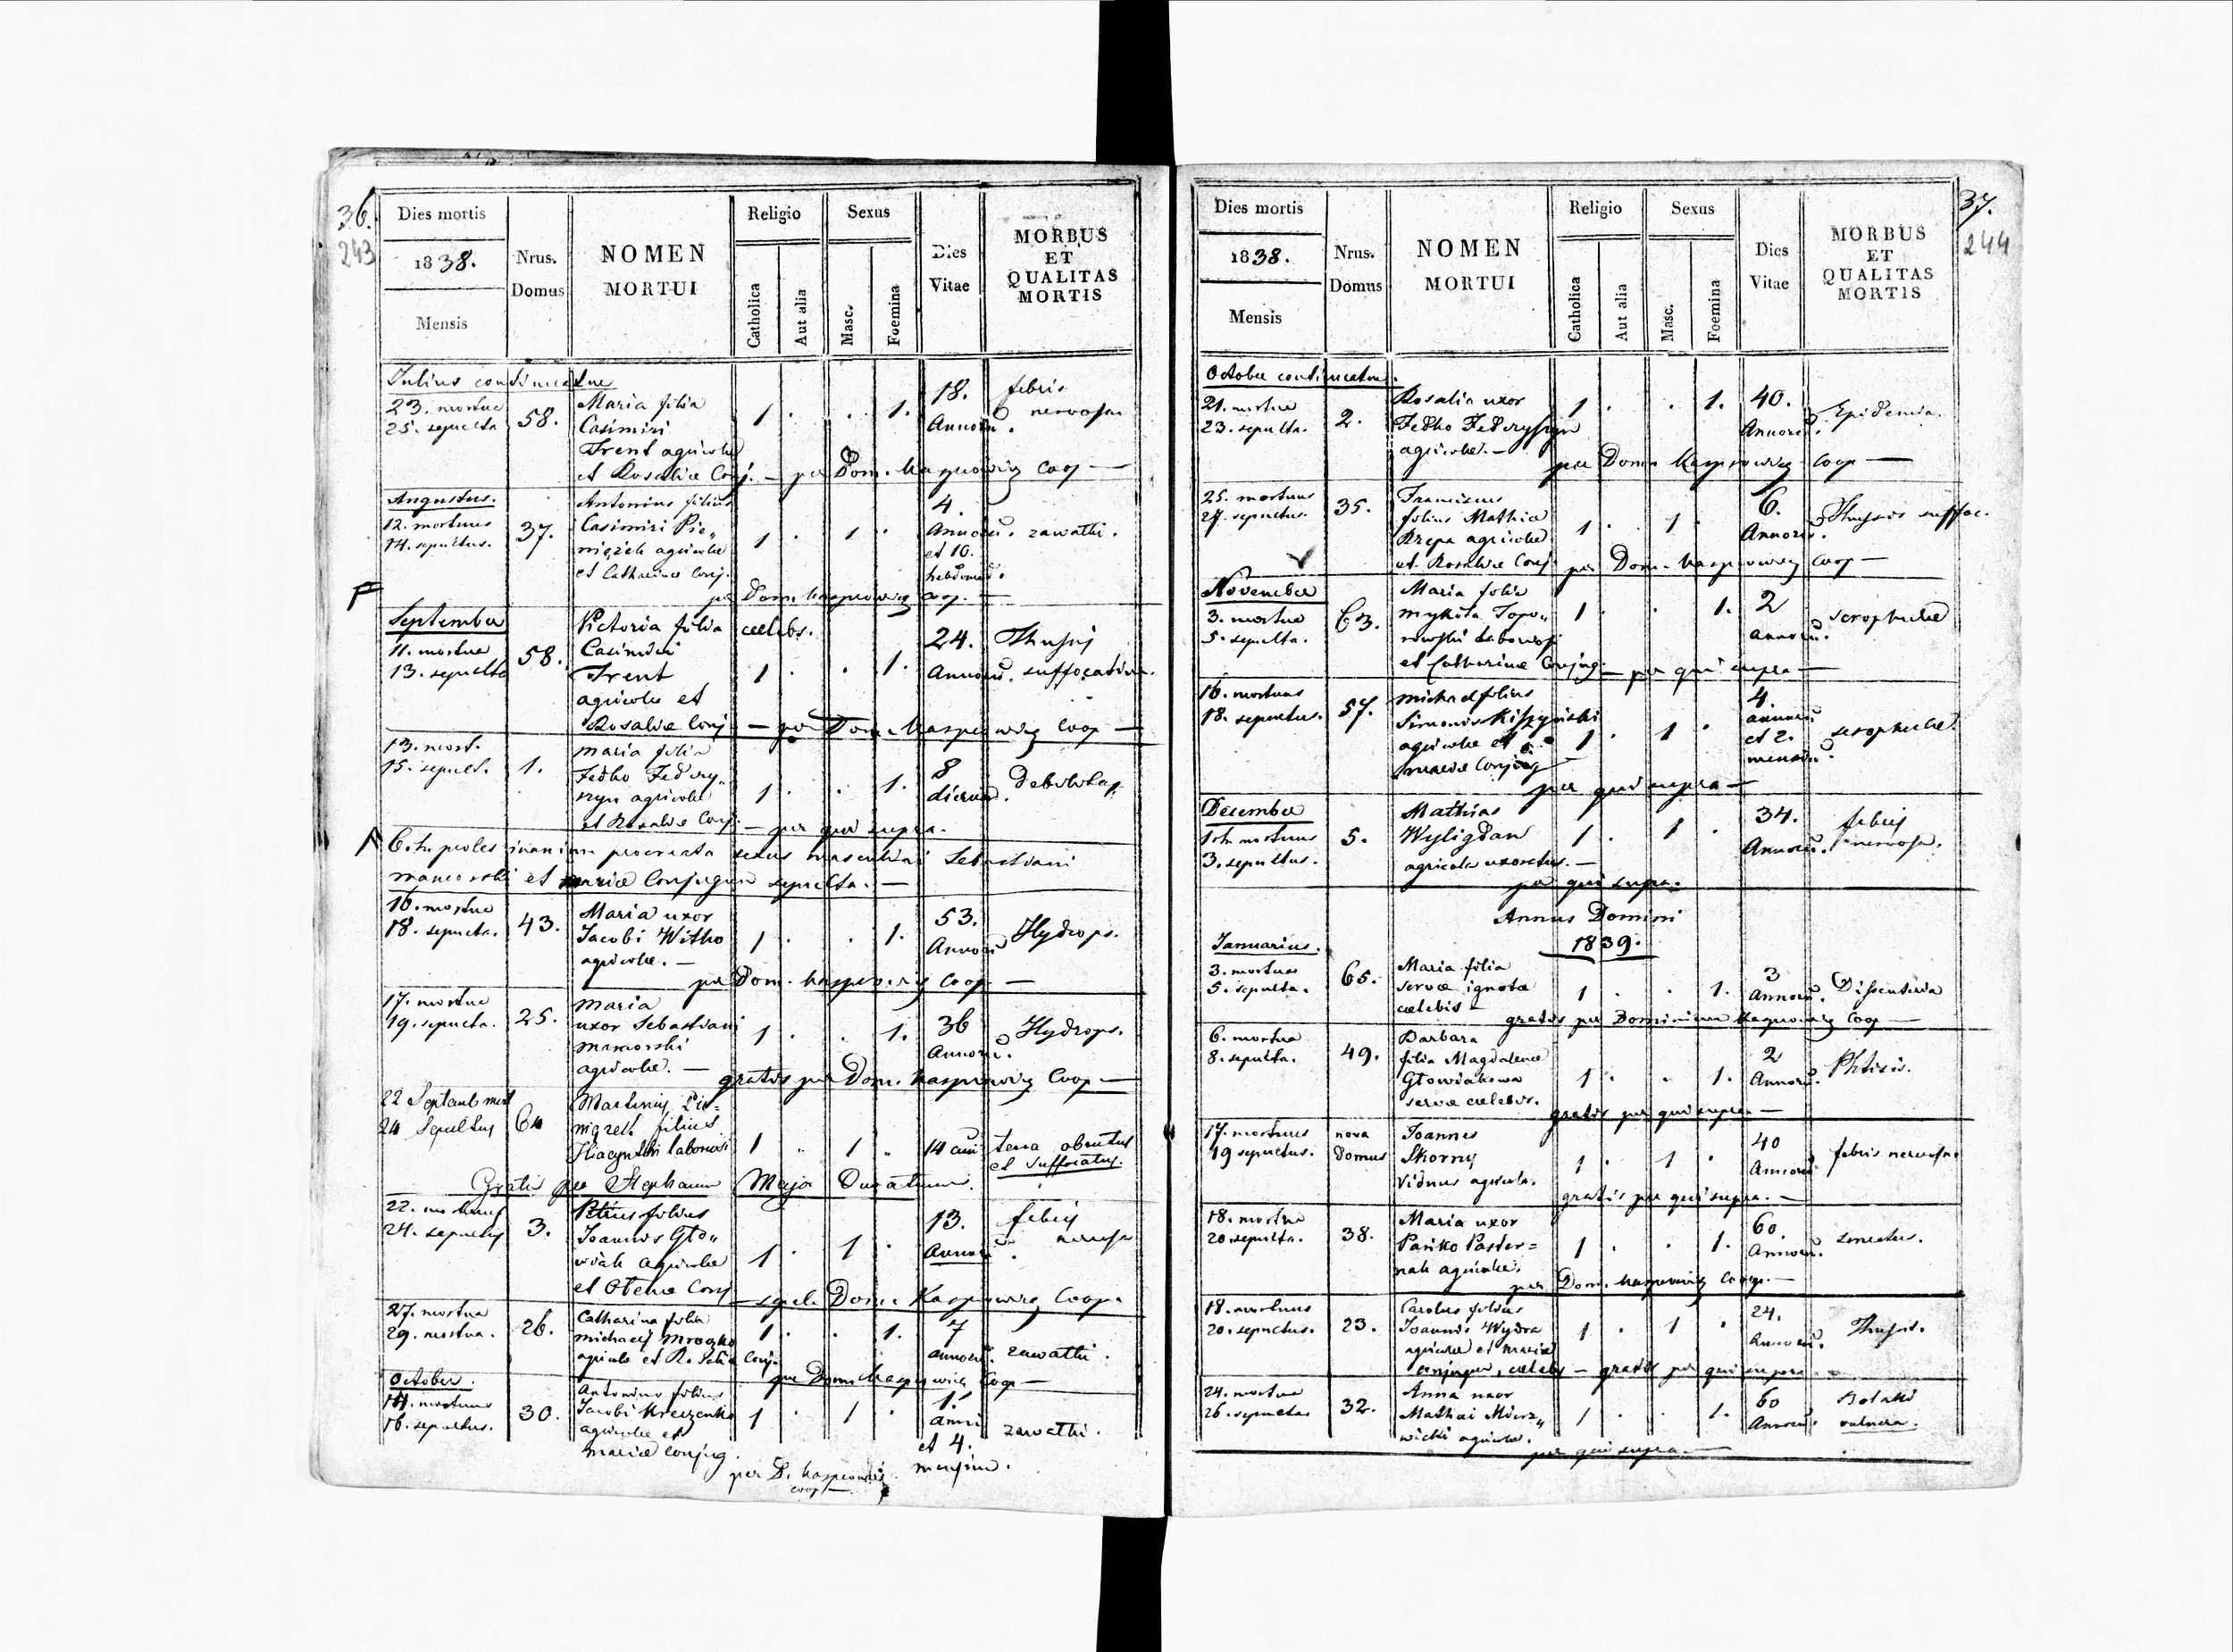 36.
243
Dies mortis
1838.
Mensis
Nrus.
Domus
NOMEN
MORTUI
Religio
Catholica
Aut alia
Sexus
Masc.
Foemina
Dies
Vitae
MORBUS
ET
QUALITAS
MORTIS
Julius continuatur
23. mortua
25. sepulta
58.
Maria filia
Casimiri
Trent agricolae
et Rosaliae Conj. — per Dom. Kasprowicz Coop —
1 . . 1.
18.
Annorū.
febris
nervosa
Augustus.
12. mortuus
14. sepultus.
37.
Antonius filius
Casimiri Pie„
niązek agricolae
et Catharinae Conj.
1 . 1 .
4.
Annorū.
et 10.
hebdomad.
zawałki.
per Dom. Kasprowicz Coop. —
September
11. mortua
13. sepulta
58.
Victoria filia caelebs.
Casimiri
Trent
agricolae et
Rosaliae Conj — per Dom. Kasprowicz Coop —
1 . . 1.
24.
Annorū.
Thusis
suffocativa.
13. mort.
15. sepult.
1.
Maria filia
Fedko Fedory„
szyn agricolae
et Rosaliae Conj. — per qui supra.
1 . . 1.
8
dierum.
Debilitas.
6. h. proles inanima procreata sexus masculini Sebastiani
et Mariae Conjugum sepulta. —
16. mortua
18. sepulta.
43.
Maria uxor
Jacobi Witko
agricolae. —
1 . . 1.
53.
Annorū
Hydrops.
per Dom. Kasprowicz Coop —
17. mortua
19. sepulta.
25.
Maria
uxor Sebastiani
agricolae. —
1 . . 1.
36
Annorū.
Hydrops.
gratis per Dom. Kasprowicz Coop —
22 Septemb mort
24 Sepultus
64
Martinus Pie=
niązek filius
Hiacynthi laboriosi
1 . 1 .
14
terra obrutus
et suffocatus.
Gratis per Stephanum
22. mortuus
24. sepultus
3.
Petrus filius
Joannis Gło„
wiak agricolae
et Conj
1 . 1 .
13.
Annorū.
febris
nervosa
Dom. Kasprowicz Coop.
27. mortua
29. mortua.
26.
Catharina filia
Michaelis Mroczko
agricolae et Conj.
1 . . 1.
7
annorū.
zawałki.
per Dom. Kasprowicz Coop —
October.
14. mortuus
16. sepultus.
30.
Antonius filius
Jacobi
agricolae et
Mariae Conjug.
1 . 1 .
1.
anni
et 4.
mensium.
zawałki.
per D. Kasprowicz
coop —
37.
244
Dies mortis
1838.
Mensis
Nrus.
Domus
NOMEN
MORTUI
Religio
Catholica
Aut alia
Sexus
Masc.
Foemina
Dies
Vitae
MORBUS
ET
QUALITAS
MORTIS
October continuatur.
21. mortua
23. sepulta.
2.
Rosalia uxor
Fedko Fedoryszyn
agricolae. —
1 . . 1.
40.
Annorū.
Epidemia.
per Dom. Kasprowicz Coop —
25. mortuus
27. sepultus.
35.
Franciscus
filius Mathiae
Rzepa agricolae
et Rosaliae Conj. per Dom. Kasprowicz Coop —
1 . 1 .
6.
Annorū.
Thussis suffoc.
November
3. mortua
5. sepulta.
63.
Maria filia
Mykita Topo„
et Catharinae Conjug. — per qui supra —
1 . . 1.
2
annorū.
scrophulae
16. mortuus
18. sepultus.
57.
Michael filius
Simonis
agricolae et
Mariae Conjug
1 . 1 .
4.
annorū
et 2.
mensiū.
scrophulae.
per qui supra —
December
1. h. mortuus
3. sepultus.
5.
Mathias
Wyligdan
agricola uxoratus. —
1 . 1 .
34.
Annorū.
febris
nervosa.
per qui supra.
Annus Domini
1839.
Januarius.
3. mortua
5. sepulta.
65.
Maria filia
servae ignotae
caelebis —
1 . . 1.
3
Annorū.
Dissenteria
gratis per Dominum Kasprowicz Coop —
6. mortua
8. sepulta.
49.
Barbara
filia Magdalenae
Głowiakowa
servae caelebis.
1 . . 1.
2
Annorū.
Phtisis.
gratis per qui supra —
17. mortuus
19 sepultus.
nova
domus
Joannes
Skorny
viduus agricola.
1 . 1 .
40
Annorū.
febris nervosa.
gratis per qui supra. —
18. mortua
20 sepulta.
38.
Maria uxor
Pańko Paster=
nak agricolae.
1 . . 1.
60.
Annorū.
senectus.
per Dom. Kasprowicz Coop. —
18. mortuus
20. sepultus.
23.
Carolus filius
Joannis Wydra
agricolae et Mariae
conjugum, caelebs — gratis per qui supra. —
1 . 1 .
24.
Annorū.
Thusis.
24. mortua
26. sepulta
32.
Anna uxor
Mathiae Mierz„
wicki agricolae.
1 . . 1.
60
Annorū.
vulnera.
per qui supra —